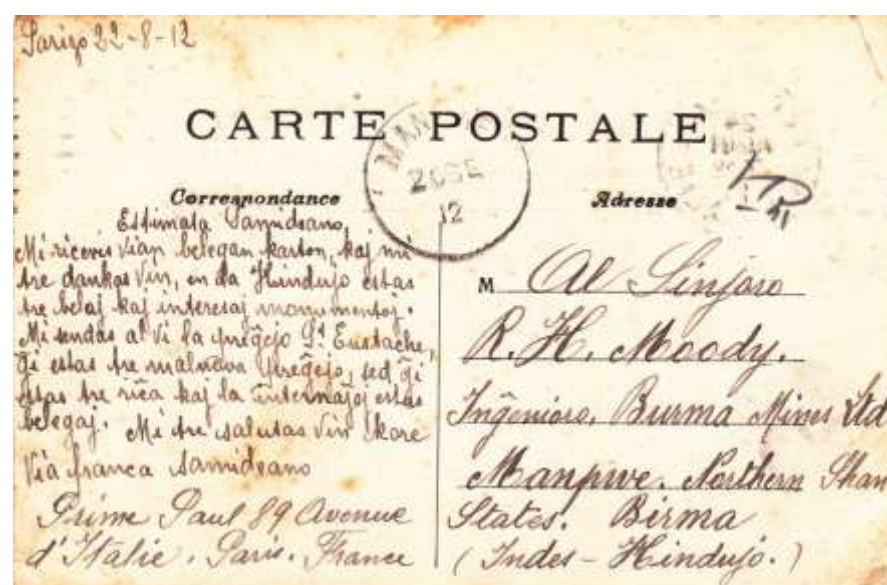 Parizo 22-8-12
CARTE POSTALE
MAN
20SE
12
Correspondance
Adresse
Estimata Samideano,
Mi ricevis vian belegan karton, kaj mi
tre dankas vin, en da Hindujo estas
tre belaj kaj interesaj monumentoj.
Mi sendas al vi la preĝejo St Eustache,
ĝi estas tre malnova preĝejo, sed ĝi
estas tre riĉa kaj la internaĵoj estas
belegaj. Mi tre salutas vin kore
Via franca samideano
Prime Paul 89 Avenue
d'Italie. Paris. France
M Al Sinjoro
R. H. Moody.
Inĝenioro, Burma Mines Ltd
Manpwe. Northern Shan
States. Birma
(Indes - Hindujo.)